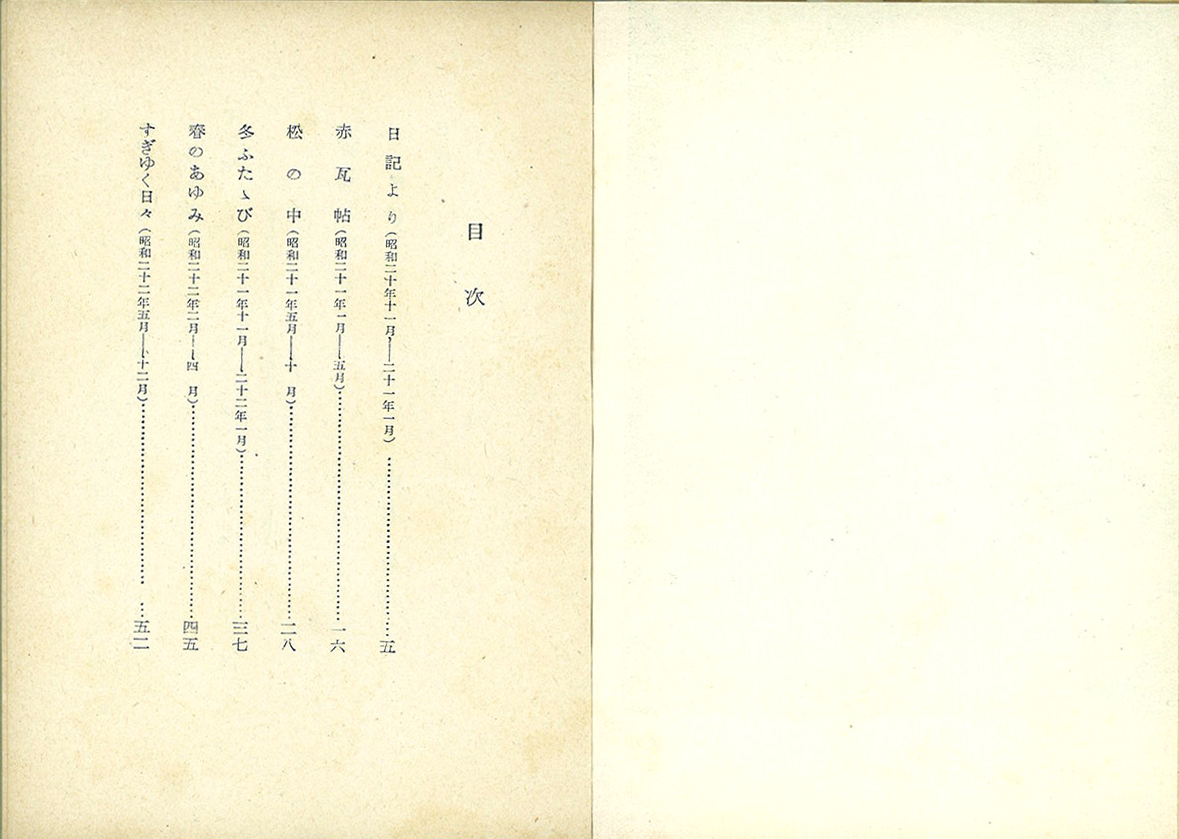 目次
日記より（昭和二十年十一月――二十一年一月）……………五
赤瓦帖（昭和二十一年一月――五月）……………一六
松の中（昭和二十一年五月――十月）……………二八
冬ふたゝび（昭和二十一年十一月――二十二年一月）……………三七
春のあゆみ（昭和二十二年二月――四月）……………四五
すぎゆく日々（昭和二十二年五月――十二月）……………五二